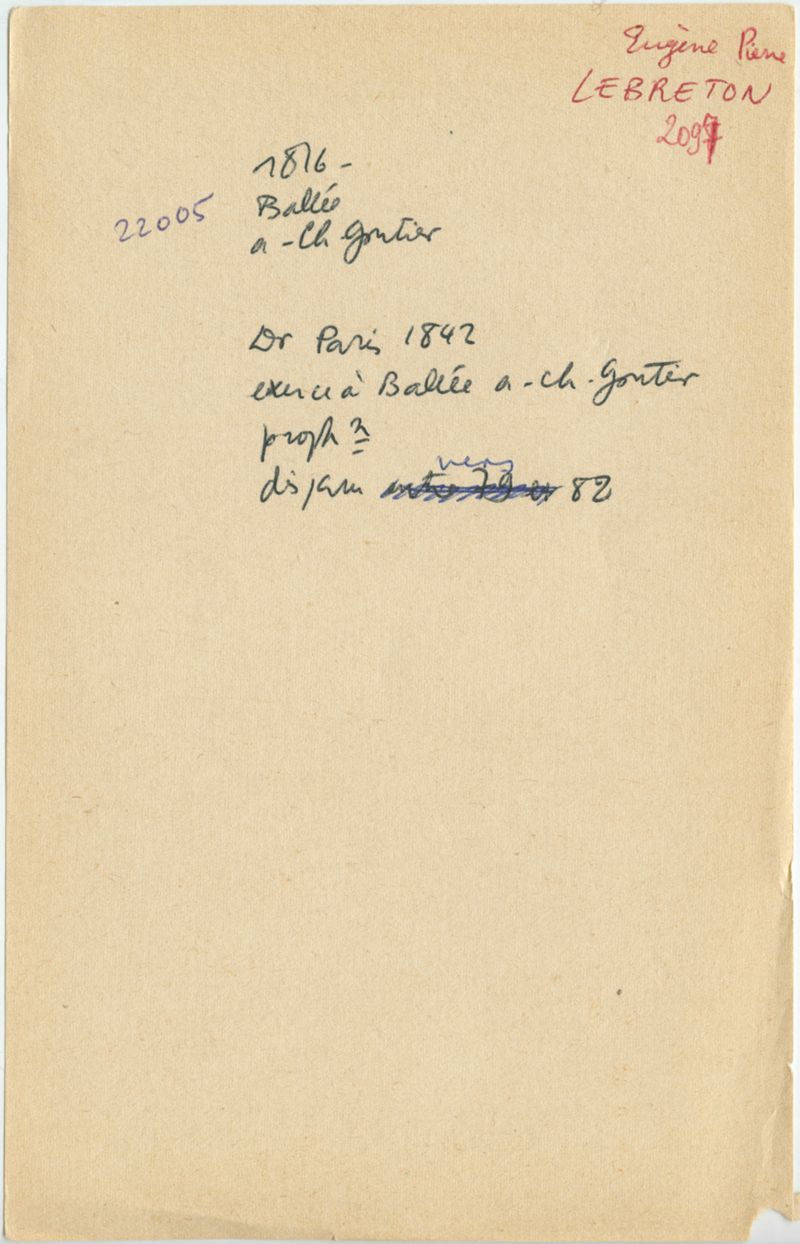 Eugène Pierre
LEBRETON
2097
1816 -
22005
Ballée
a - Ch Gontier
Dr Paris 1842
exerce à Ballée a - ch - Gontier
proph n
vers
disparu entre 79 et 82